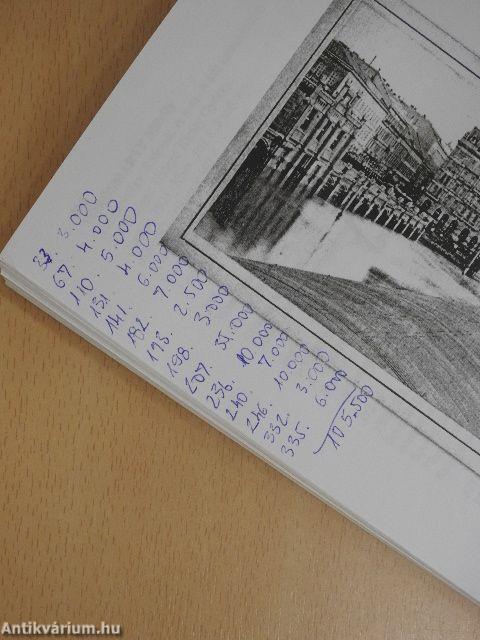 33. 3.000
67. 4.000
110. 5.000
131. 4.000
141. 6.000
182. 7.000
193. 2.500
198. 3.000
207. 35.000
236. 10 000
240. 7.000
246. 10.000
332. 3.000
335. 6.000
105.500
Antikvárium.hu